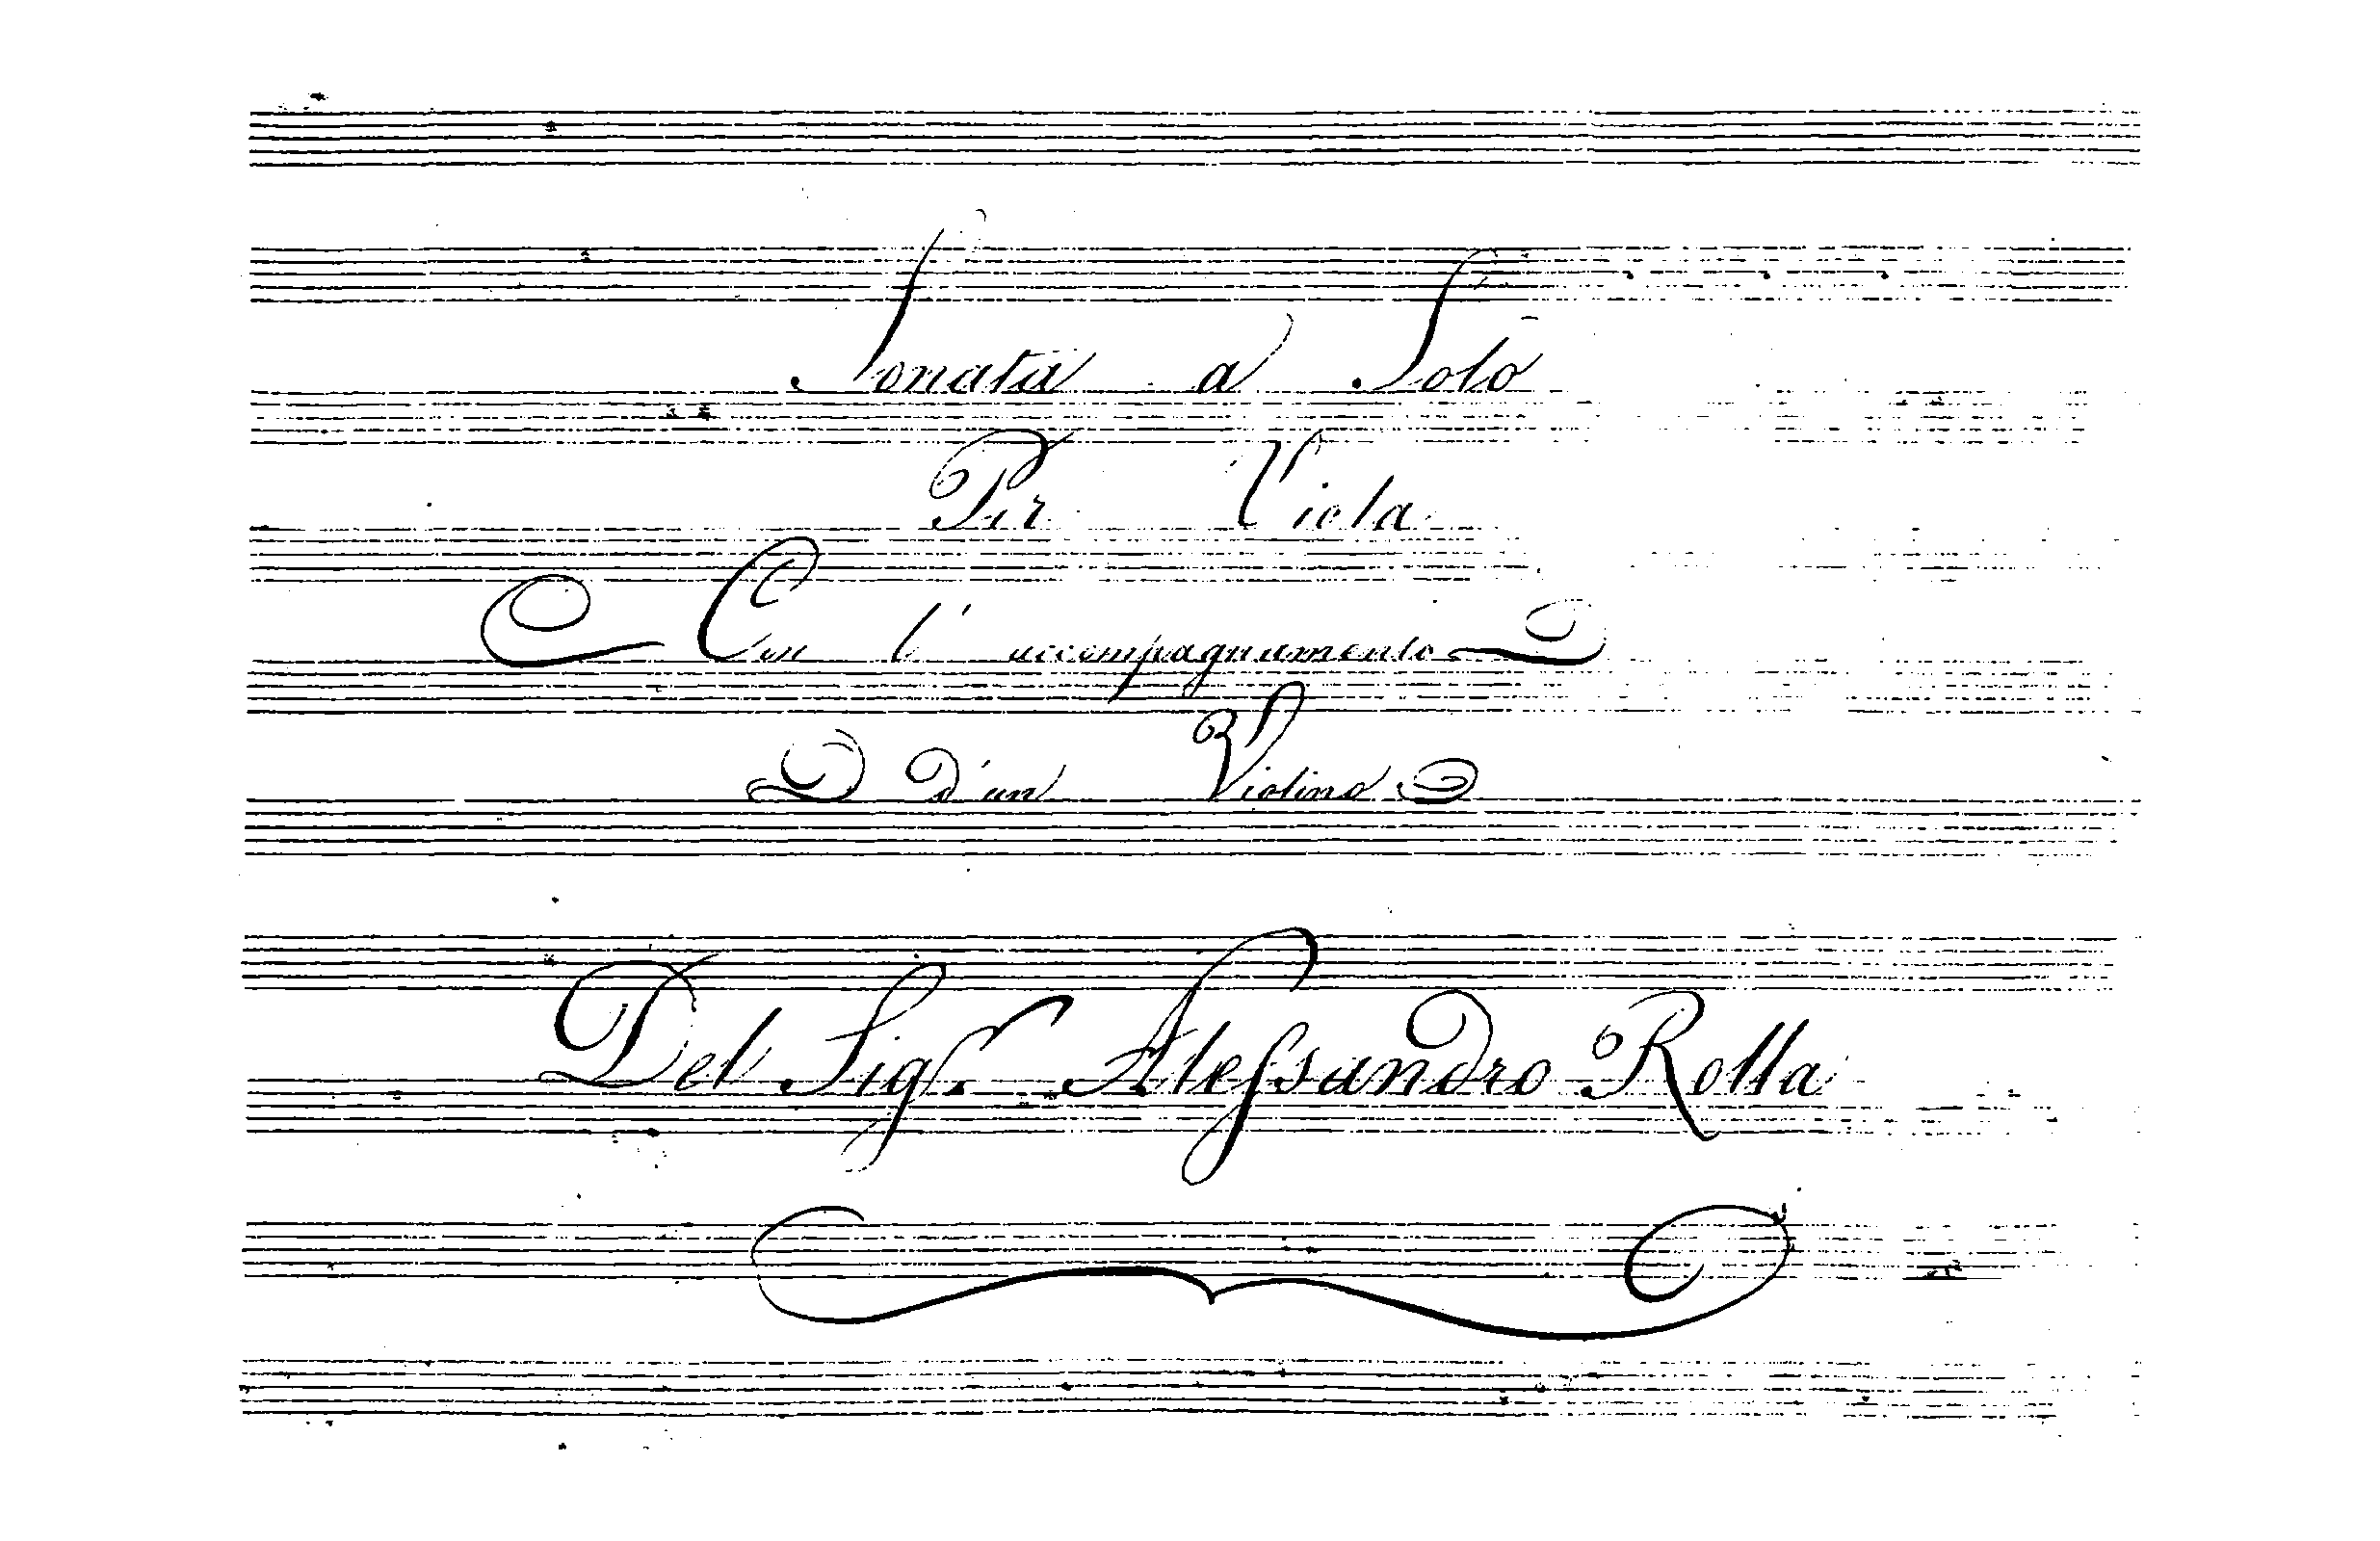 Sonata a Solo
Per Viola
Con l'accompagnamento
D'un Violino
Del Sigr. Alessandro Rolla